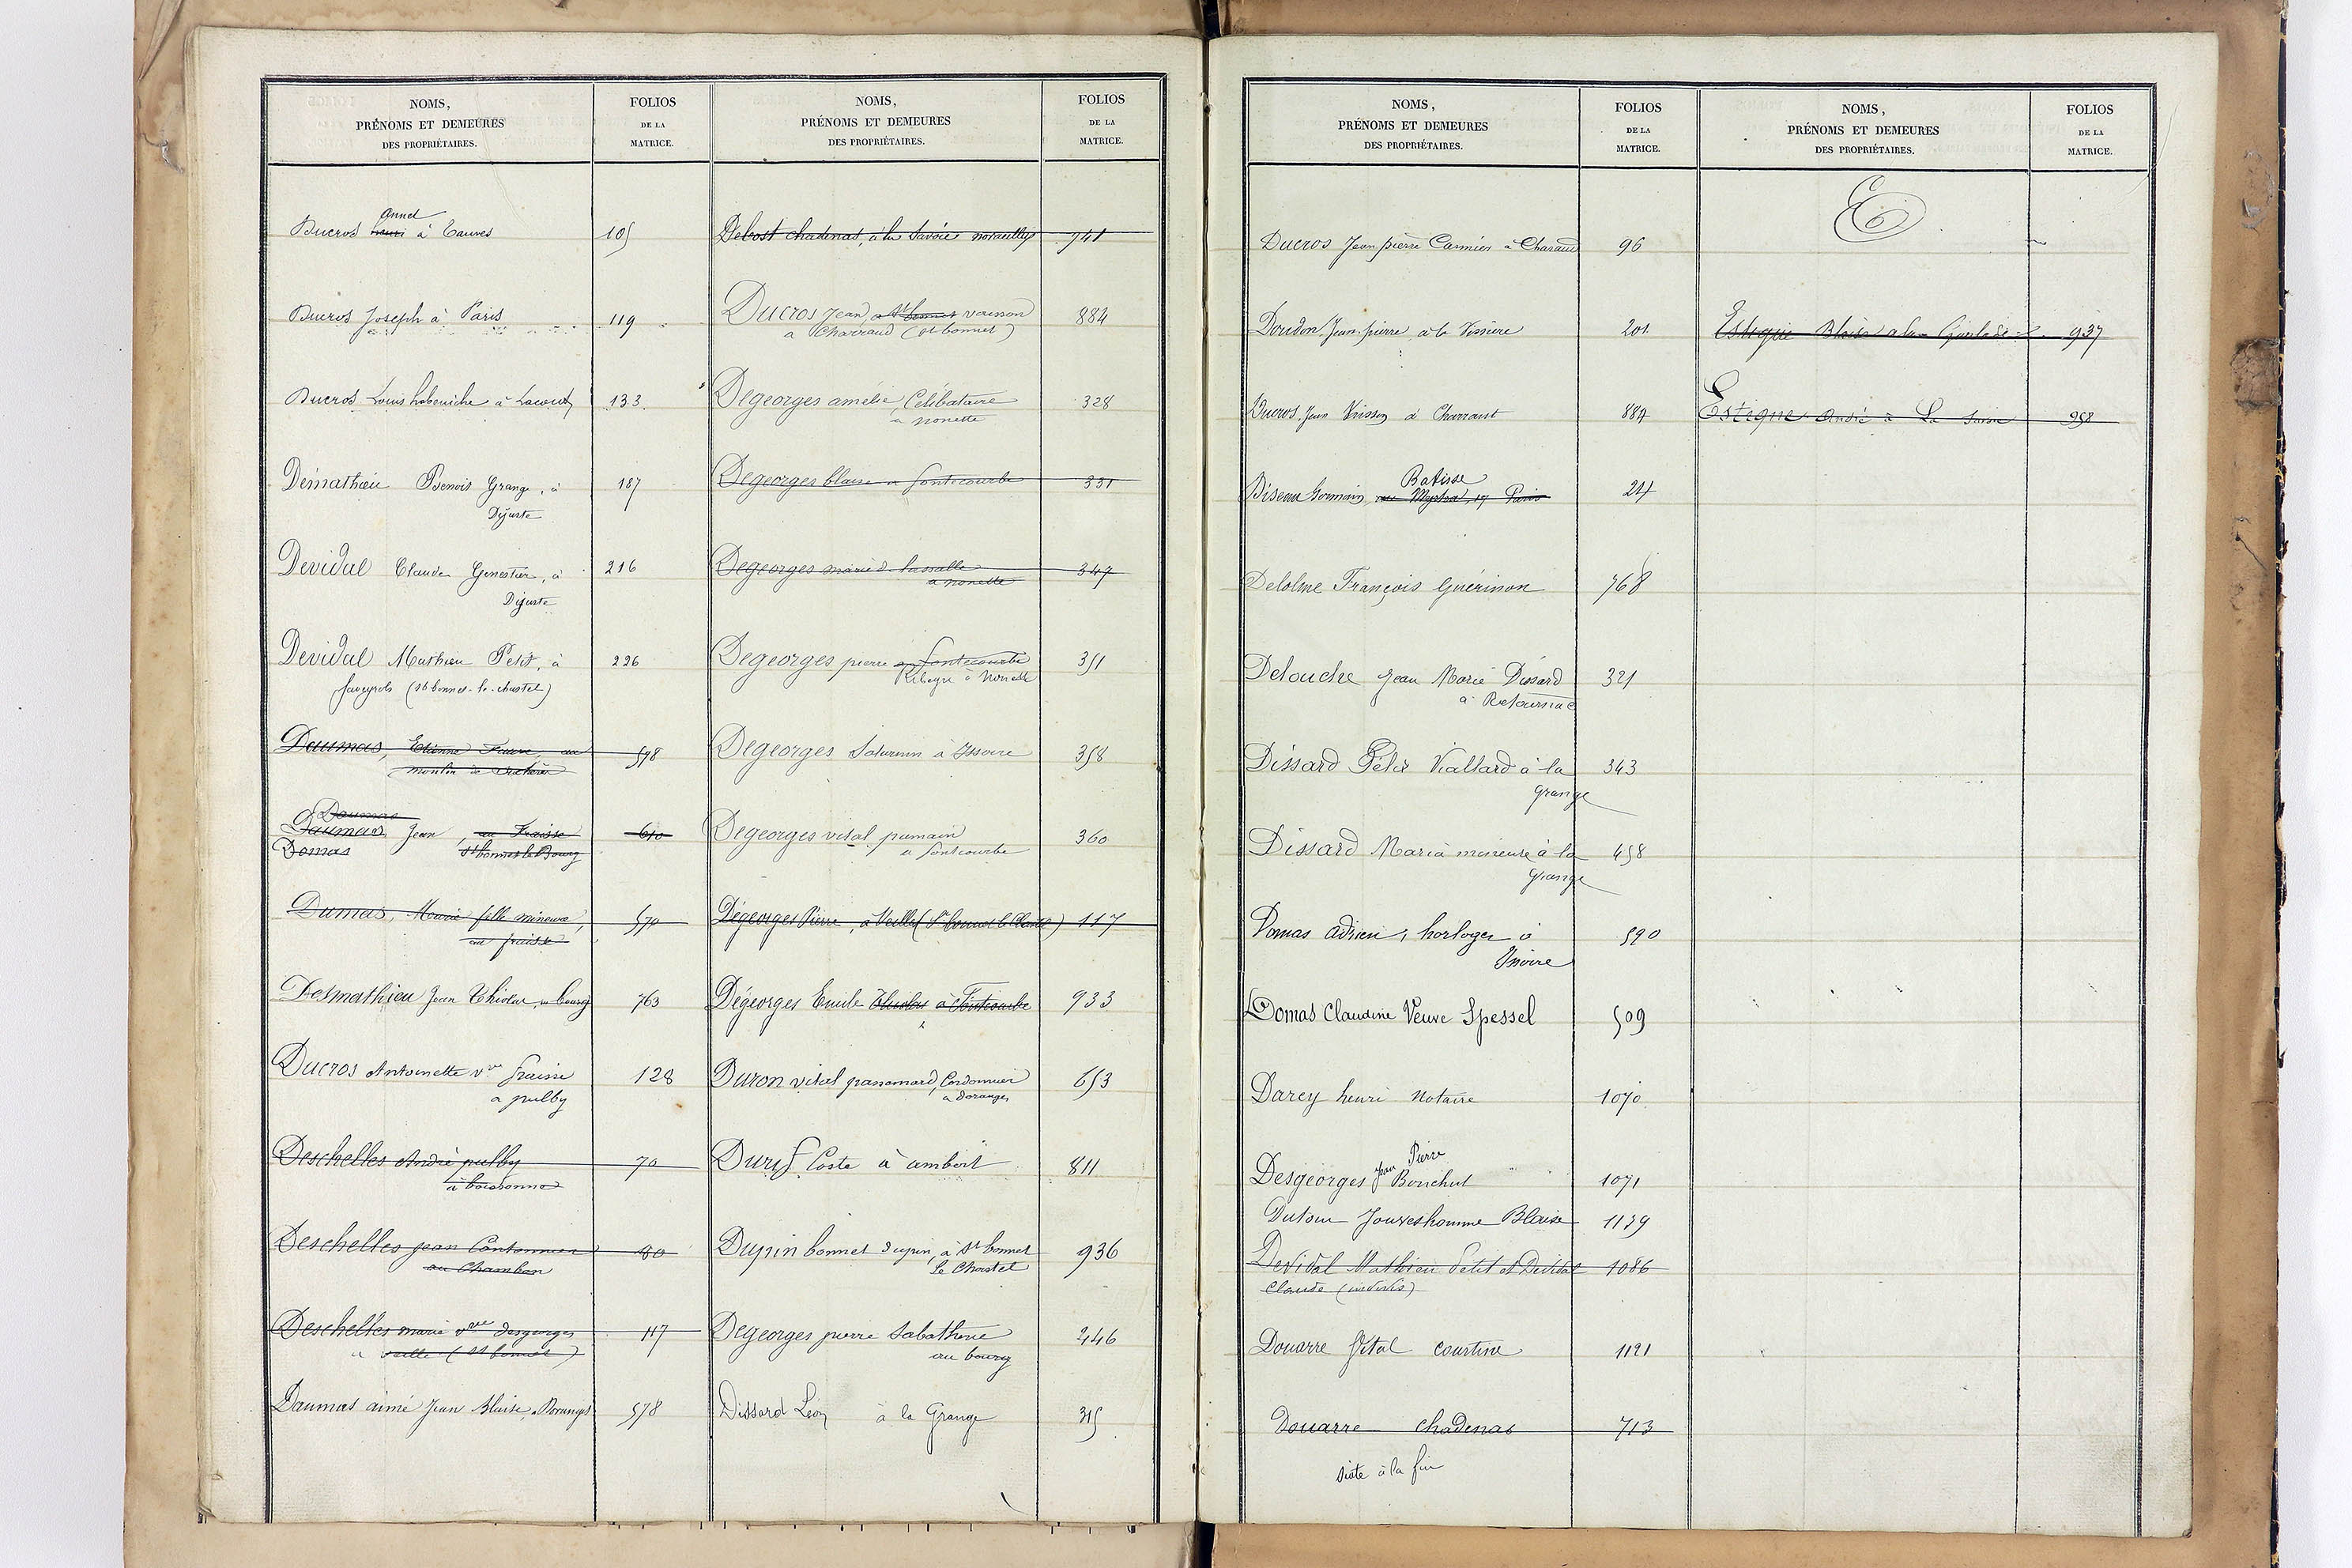 NOMS,
PRÉNOMS ET DEMEURES
DES PROPRIÉTAIRES.
FOLIOS
DE LA
MATRICE.
annet
Ducros henri à Tauves 105
Ducros Joseph à Paris 119
Ducros Louis à 133
Démathieu Benoit Grange, à 187
Dijuste
Devidal Claude Genestier, à 216
Dijuste
Devidal Mathieu Petit, à 226
faveyrols (st bonnet-le-chastel)
Daumas, Etienne Faure, au 578
moulin de
Daumas
Daumas Jean, au Fraisse 610
Domas st bonnet le Bourg
Dumas, Marie fille mineure, 570
au fraisse
Desmathieu Jean Thiolas, au bourg 763
Ducros Antoinette vve fraisse 128
a pulby
Deschelles André pulby 70
à boissonne
Deschelles jean Cantonnier 80
au Chambon
Deschelles marie vve desgeorges 117
a veille (st bonnet)
Daumas aimé Jean Blaise, a Doranges 578
NOMS,
PRÉNOMS ET DEMEURES
DES PROPRIÉTAIRES.
FOLIOS
DE LA
MATRICE.
Delcost chadenat, à la Savoie novacelles 741
Ducros Jean a St bonnet voisson 884
a Charraud (st bonnet)
Degeorges amélie, Célibataire 328
a nonette
Degeorges blaise a fontcourbe 331
Degeorges marie d. lassalle 347
a nonette
Degeorges pierre a fontcourbe 351
Ribeyre à Nonette
Degeorges Saturnin à Issoire 358
Degeorges vital pumain 360
a fontcourbe
Dégeorges Pierre, a Veille (St bonnet le Chastel) 117
Dégeorges Emile Thiolas à Fontcourbe 933
Duron vital panomard, Cordonnier 653
a doranges
Durif Coste à ambert 811
Dupin bonnet dupin, à St bonnet 936
le Chastel
Degeorges pierre Sabatherie 246
au bourg
Dissard Léon à la Grange 315
NOMS,
PRÉNOMS ET DEMEURES
DES PROPRIÉTAIRES.
FOLIOS
DE LA
MATRICE.
Ducros Jean pierre Carmier a Charaud 96
Dourdon Jean-pierre à la Vissiere 201
Ducros, Jean Voisson à Charraut 884
Batisse
Biseau Germain, rue Myrha, 17 Paris 24
Delolme François Guérinon 768
Delouche Jean Marie Dissard 321
à Retournac
Dissard Félix Viallard à la 343
Grange
Dissard Maria mineure à la 458
Grange
Domas Adrien, horloger à 590
Issoire
Domas Claudine Veuve Spessel 509
Darcy henri Notaire 1070
Pierre
Desgeorges Jean Bouchut 1071
Dutour Jouveshomme Blaise 1139
Devidal Mathieu Petit et Devidal 1086
Claude (indivis)
Douarre Vital courtine 1121
Douarre Chadenas 713
suite à la fin
NOMS,
PRÉNOMS ET DEMEURES
DES PROPRIÉTAIRES.
FOLIOS
DE LA
MATRICE.
E
Esteque Blaise a la 937
Estèque André à La 958